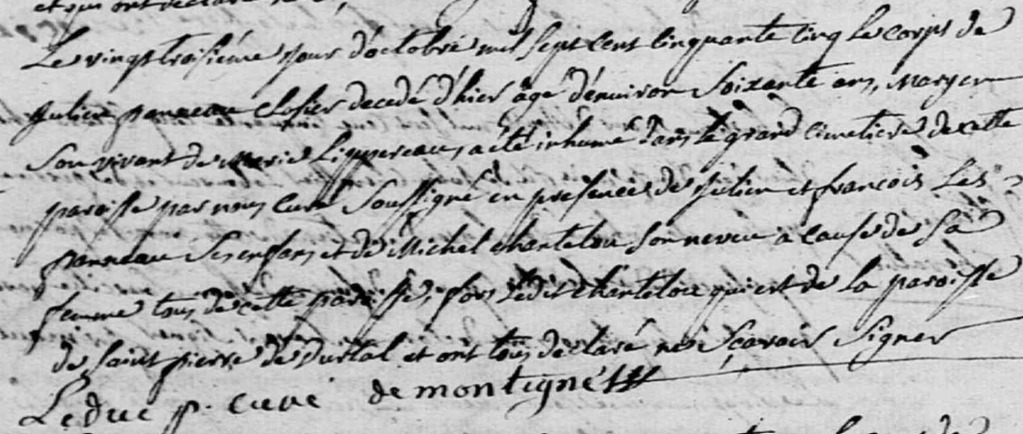 et qui ont declaré ne
Le vingt troisiéme jour d'octobre mil sept cent cinquante cinq le corps de
Julien panneau closier decedé d'hier âgé d'environ soixante ans, Mary en
son vivant de Marie Lippereau, a été inhumé dans le grand cimetiere de cette
paroisse par nous curé soussigné en presence de Julien et françois les
panneau ses enfans et de Michel chantelou son neveu a cause de sa
femme tous de cette paroisse, fors ledit chantelou qui est de la paroisse
de saint pierre de durtal et ont tous declaré ne sçavoir signer
Leduc p. curé de montigné